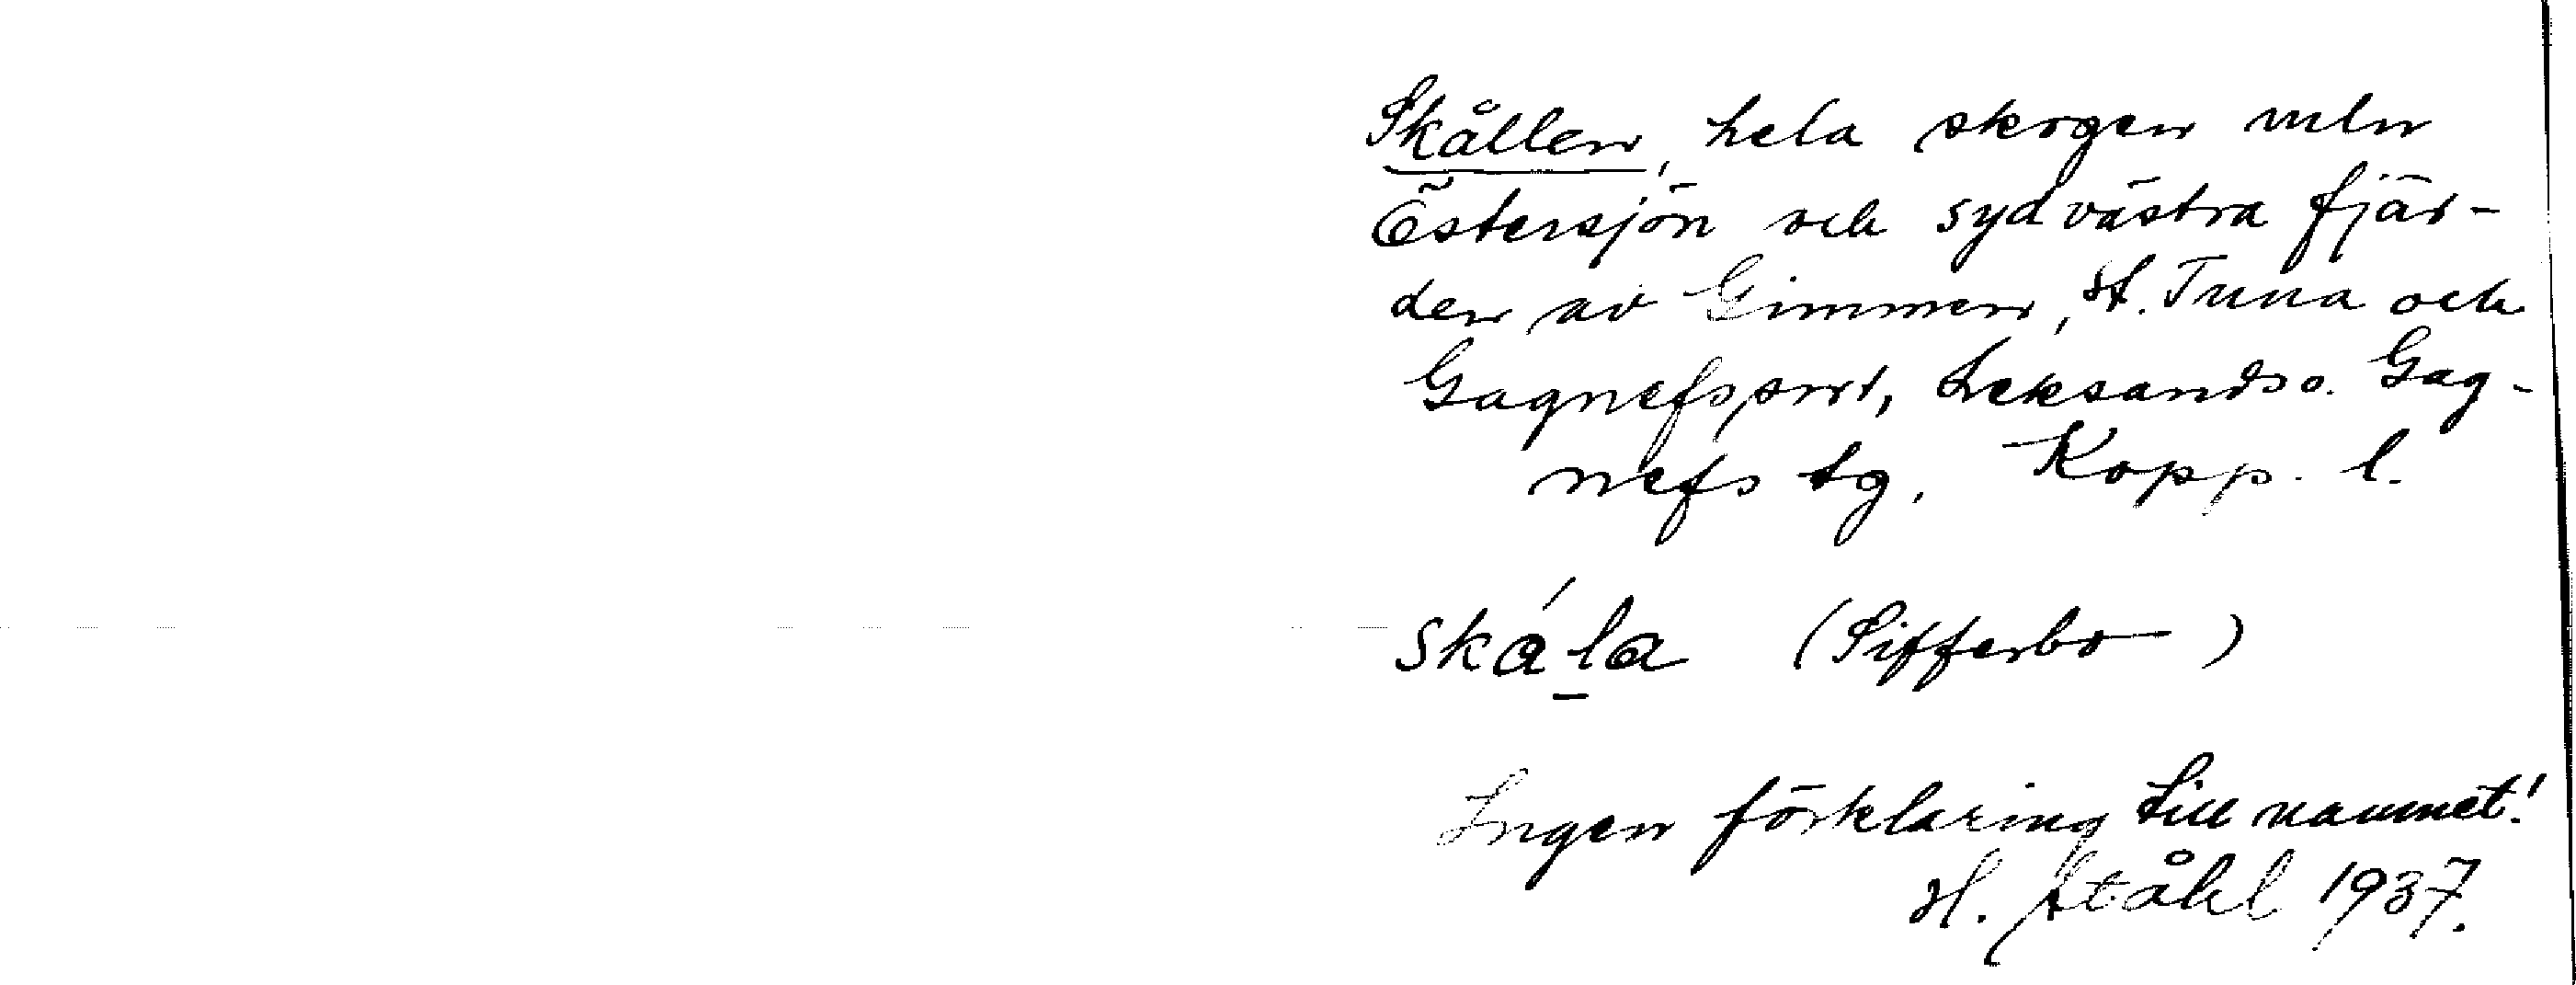 Skållen, hela skogen mln
Östersjön och sydvästra fjär-
den av Gimmen, St. Tuna och
Gagnefs snr, Leksands o. Gag-
nefs tg, Kopp. l.
skála (Sifferbo)
Ingen förklaring till namnet!
H. Ståhl 1937.